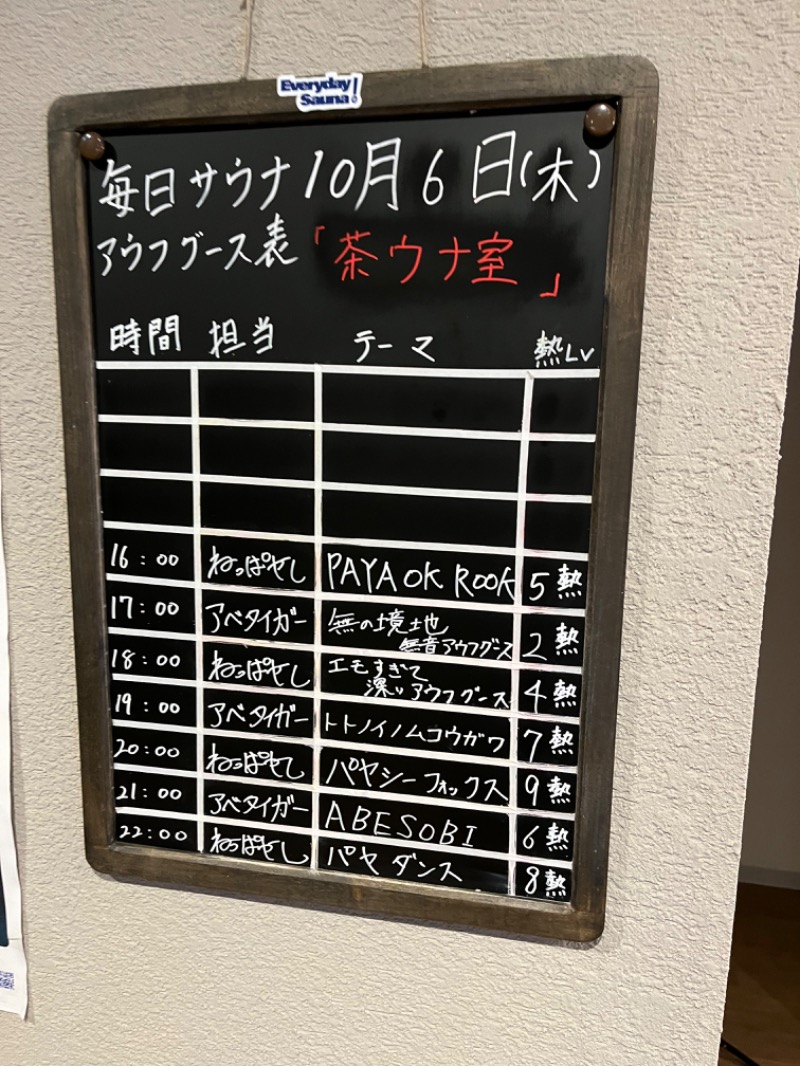 Everyday
Sauna!
毎日サウナ 10月6日(木)
アウフグース表「茶ウナ室」
時間 担当 テーマ 熱Lv
16:00 ねっぱやし PAYA OK ROOK 5熱
17:00 アベタイガー 無の境地 無音アウフグース 2熱
18:00 ねっぱやし エモすぎて 深いアウフグース 4熱
19:00 アベタイガー トトノイノムコウガワ 7熱
20:00 ねっぱやし パヤシーフォックス 9熱
21:00 アベタイガー ABESOBI 6熱
22:00 ねっぱやし パヤダンス 8熱